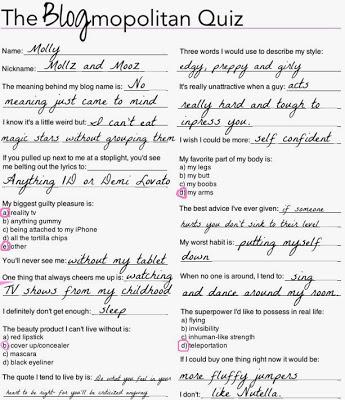 The Blogmopolitan Quiz
Name: Molly
Nickname: Mollz and Mooz
The meaning behind my blog name is: No
meaning just came to mind
I know it's a little weird but: I can't eat
magic stars without grouping them
If you pulled up next to me at a stoplight, you'd see
me belting out the lyrics to:
Anything 1D or Demi Lovato
My biggest guilty pleasure is:
a) reality tv
b) anything gummy
c) being attached to my iPhone
d) all the tortilla chips
e) other
You'll never see me: without my tablet
One thing that always cheers me up is: watching
TV shows from my childhood
I definitely don't get enough: sleep
The beauty product I can't live without is:
a) red lipstick
b) cover up/concealer
c) mascara
d) black eyeliner
The quote I tend to live by is: Do what you feel in your
heart to be right- for you'll be criticized anyway
Three words I would use to describe my style:
edgy, preppy and girly
It's really unattractive when a guy: acts
really hard and tough to
inpress you.
I wish I could be more: self confident
My favorite part of my body is:
a) my legs
b) my butt
c) my boobs
d) my arms
The best advice I've ever given: if someone
hurts you don't sink to their level
My worst habit is: putting myself
down
When no one is around, I tend to: sing
and dance around my room.
The superpower I'd like to possess in real life:
a) flying
b) invisibility
c) inhuman-like strength
d) teleportation
If I could buy one thing right now it would be:
more fluffy jumpers
I don't: like Nutella.